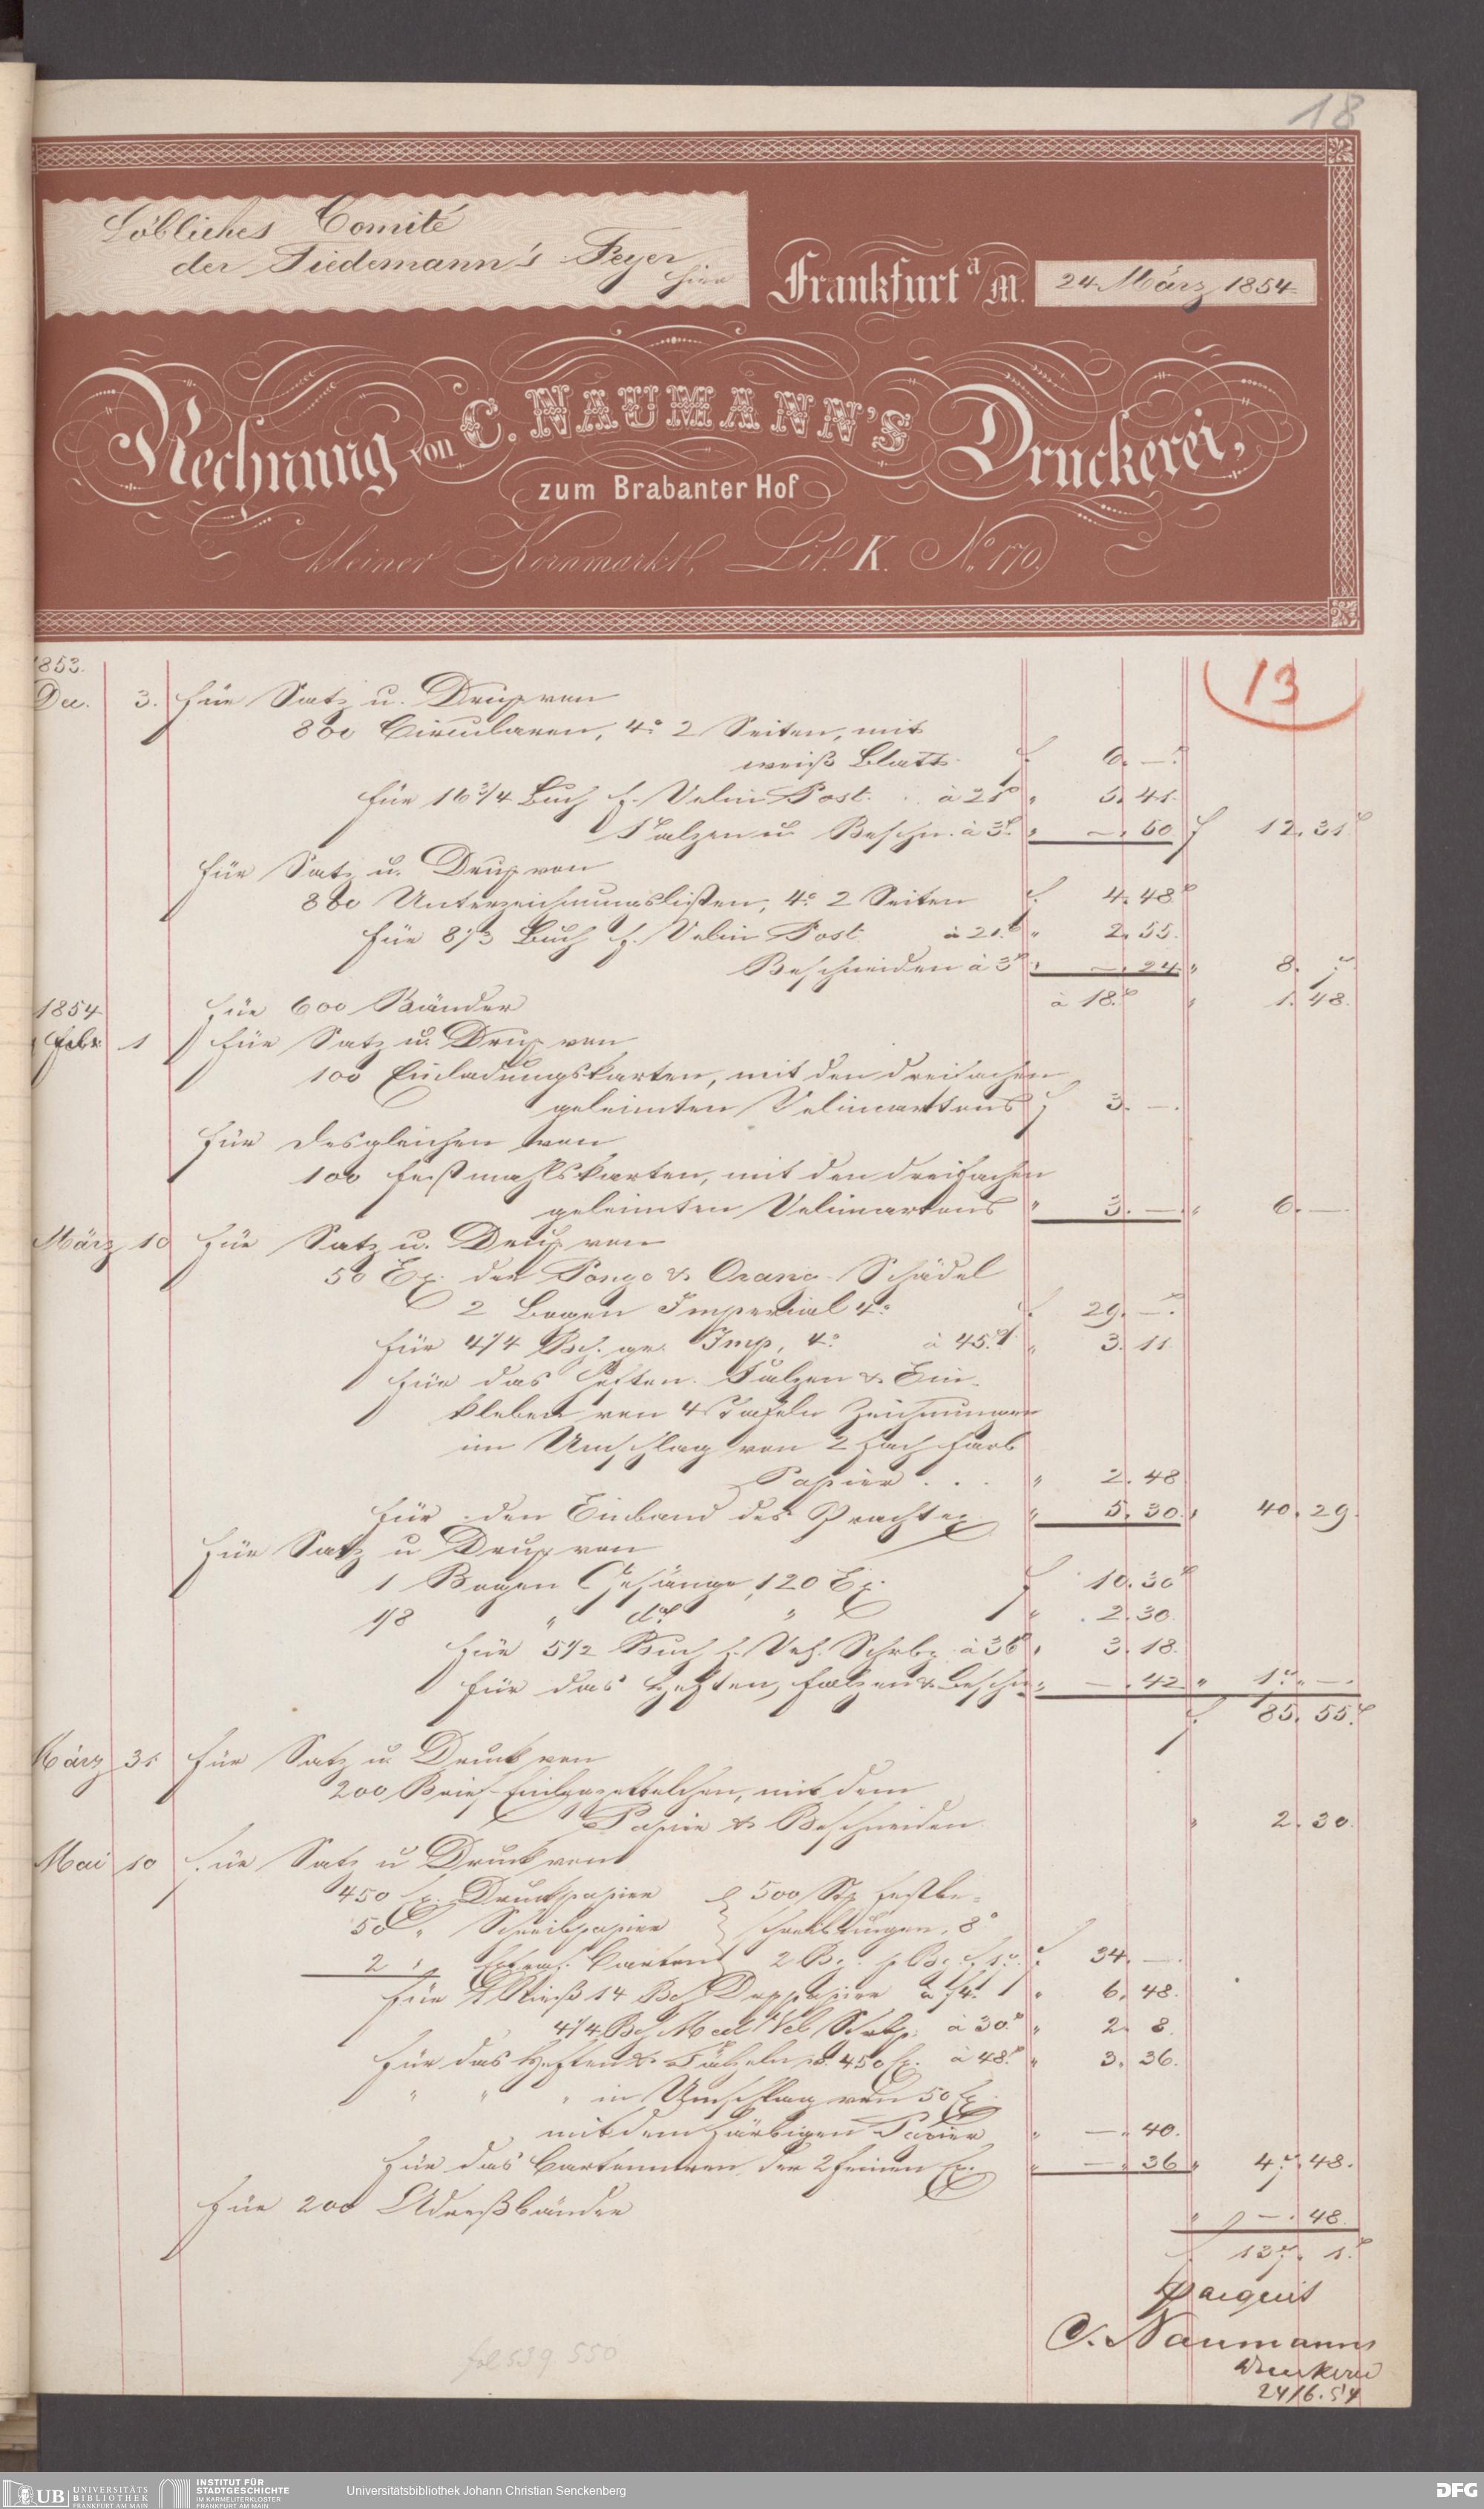 18
Löbliches Comité
der Tiedemann's Feyer
hier
Frankfurt a/M. 24 März 1854
Rechnung von C. NAUMANN'S Druckerei,
zum Brabanter Hof
kleiner Kornmarkt, Lit. K. No. 170.
13
1853.
Dec. 3. Für Satz u. Druck von
800 Circularen, 4o 2 Seiten, mit
weiß Blatt f 6. —.
Für 16 3/4 Buch f. Velin Post. à 21 " 5. 41.
Falzen u. Beschn. à 3 " —. 50 f 12. 31.
Für Satz u. Druck von
800 Unterzeichnungslisten, 4o 2 Seiten f. 4. 48
Für 8 1/3 Buch f. Velin Post à 21. " 2. 55.
Beschneiden à 3 " —. 24. " 8. 7
1854. Für 600 Bänder à 18. " 1. 48.
Febr. 1 Für Satz u. Druck von
100 Einladungskarten, mit den dreifachen
geleimten Velincartons f 3. —.
Für desgleichen von
100 Festmahlskarten, mit den dreifachen
geleimten Velincartons " 3. —. " 6. —.
März 10 Für Satz u. Druck von
50 Ex. der Pongo & Orang Schädel
2 Bogen Imperial 4o f. 29. —.
Für 4 1/4 Bch. gr. Imp. 4o à 45. " 3. 11
Für das Heften. Falzen & Ein-
kleben von 4 Tafeln Zeichnungen
im Umschlag von 2fach farb
Papier . . . " 2. 48
Für den Einband des Prachtex. " 5. 30. " 40. 29.
Für Satz u Druck von
1 Bogen Gesänge, 120 Ex. f 10. 30
1/8 " do " " 2. 30.
Für 5 1/2 Buch f. Vel. Schrbp. à 36 " 3. 18.
Für das Heften, Falzen & Beschn. " —. 42 " 17. —.
f. 85. 55.
März 31 Für Satz u. Druck von
200 Brief-Einlagzettelchen, mit dem
Papier & Beschneiden " 2. 30.
Mai 10 Für Satz u Druck von
450 Ex. Druckpapier } 500 Stk Festbe-
50 " Schreibpapier } schreibungen, 8o
2 " Carton 2 Bg. f. 34. —.
Für 1 Rieß 14 Bch Druckpapier à f4. " 6. 48.
4 1/4 Bch Med Vel Schrbp. à 30. " 2. 8.
Für das Heften & v. 450 Ex. à 48. " 3. 36.
" " " in Umschlag von 50 Ex
mit dem färbigen Papier " —. 40.
Für das Cartonniren der 2 feinen Ex. " —. 36 " 47. 48.
Für 200 Adreßbänder " —. 48.
f. 137. 1.
pr acquit
C. Naumanns
Druckerei
24/6. 54
fol 539 550
UB UNIVERSITÄTS
BIBLIOTHEK
FRANKFURT AM MAIN
INSTITUT FÜR
STADTGESCHICHTE
IM KARMELITERKLOSTER
FRANKFURT AM MAIN
Universitätsbibliothek Johann Christian Senckenberg
DFG